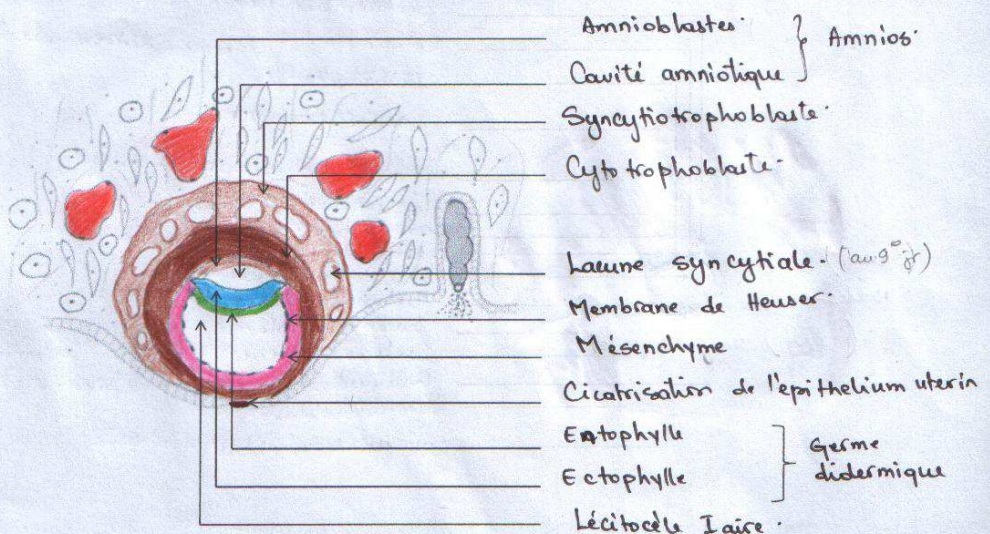 Amnioblastes.
Amnios.
Cavité amniotique
Syncytiotrophoblaste.
Cytotrophoblaste.
Lacune syncytiale. (au 9e jr)
Membrane de Heuser.
Mésenchyme
Cicatrisation de l'épithelium uterin
Entophylle
Ectophylle
Germe
didermique
Lécitocèle Iaire.